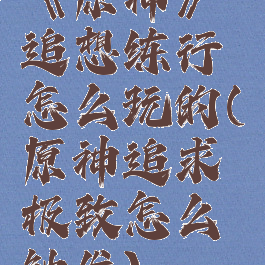 《原神》
追想练行
怎么玩的(
原神追求
极致怎么
触发)